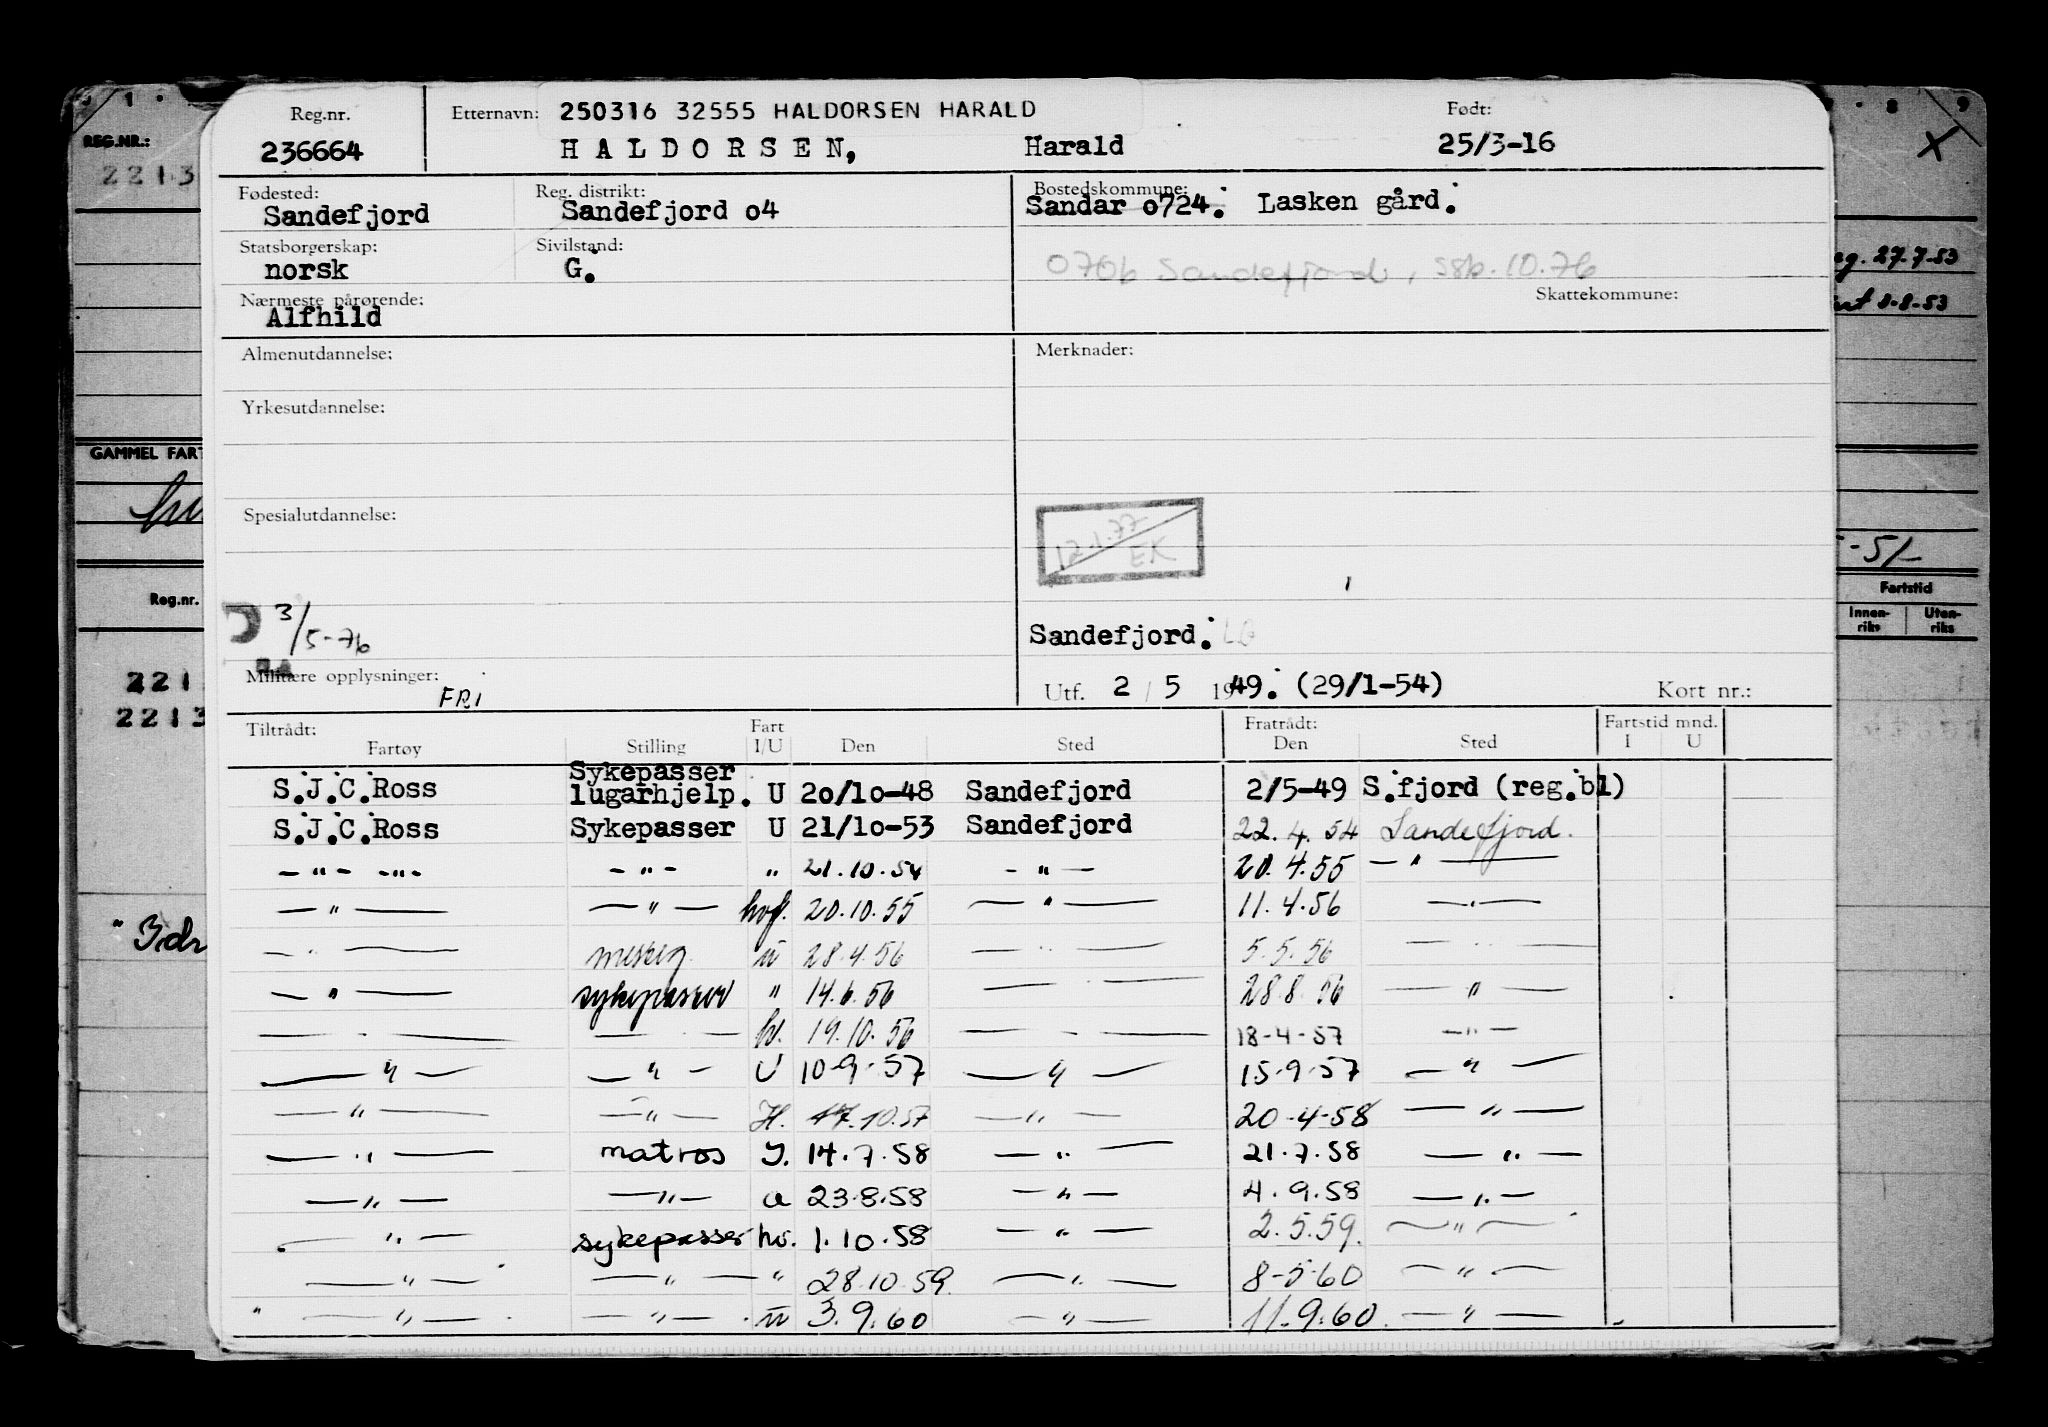 Reg.nr. Etternavn: 250316 32555 HALDORSEN HARALD Født:
236664 HALDORSEN, Harald 25/3-16
Fødested: Reg. distrikt: Bostedskommune:
Sandefjord Sandefjord o4 Sandar o724. Lasken gård.
Statsborgerskap: Sivilstand:
norsk G. 0706 Sandefjord, ssk. 10.76
Nærmeste pårørende: Skattekommune:
Alfhild
Almenutdannelse: Merknader:
Yrkesutdannelse:
Spesialutdannelse: 12.1.77
EK
3/5-76
Sandefjord.
Militære opplysninger: FRI Utf. 2 / 5 1949. (29/1-54) Kort nr.:
Tiltrådt: Fart Fratrådt: Fartstid mnd.
Fartøy Stilling I/U Den Sted Den Sted I U
S.J.C.Ross Sykepasser lugarhjelp. U 2o/1o-48 Sandefjord 2/5-49 S.fjord (reg.bl)
S.J.C.Ross Sykepasser U 21/1o-53 Sandefjord 22.4.54 Sandefjord.
-"- -"- -"- " 21.10.54 -"- 20.4.55 -"-
-"- -"- hvf. 20.10.55 -"- 11.4.56 -"-
-"- ü 28.4.56 -"- 5.5.56 -"-
-"- sykepasser " 14.6.56 -"- 28.8.56 -"-
-"- -"- hv. 19.10.56 -"- 18-4-57 -"-
-"- -"- U 10-9-57 -"- 15-9-57 -"-
-"- -"- H. 17.10.57 -"- 20-4-58 -"-
-"- matros I. 14.7.58 -"- 21.7.58 -"-
-"- -"- u 23.8.58 -"- 4.9.58 -"-
-"- sykepasser hv. 1.10.58 -"- 2.5.59. -"-
-"- -"- " 28.10.59. -"- 8-5-60 -"-
-"- -"- ü 3.9.60 -"- 11.9.60. -"-
REG.NR.:
2213
GAMMEL FART
Reg.nr.
221
2213
27.7.53
8-8-53
-51
Fartstid
Innen-riks Uten-riks